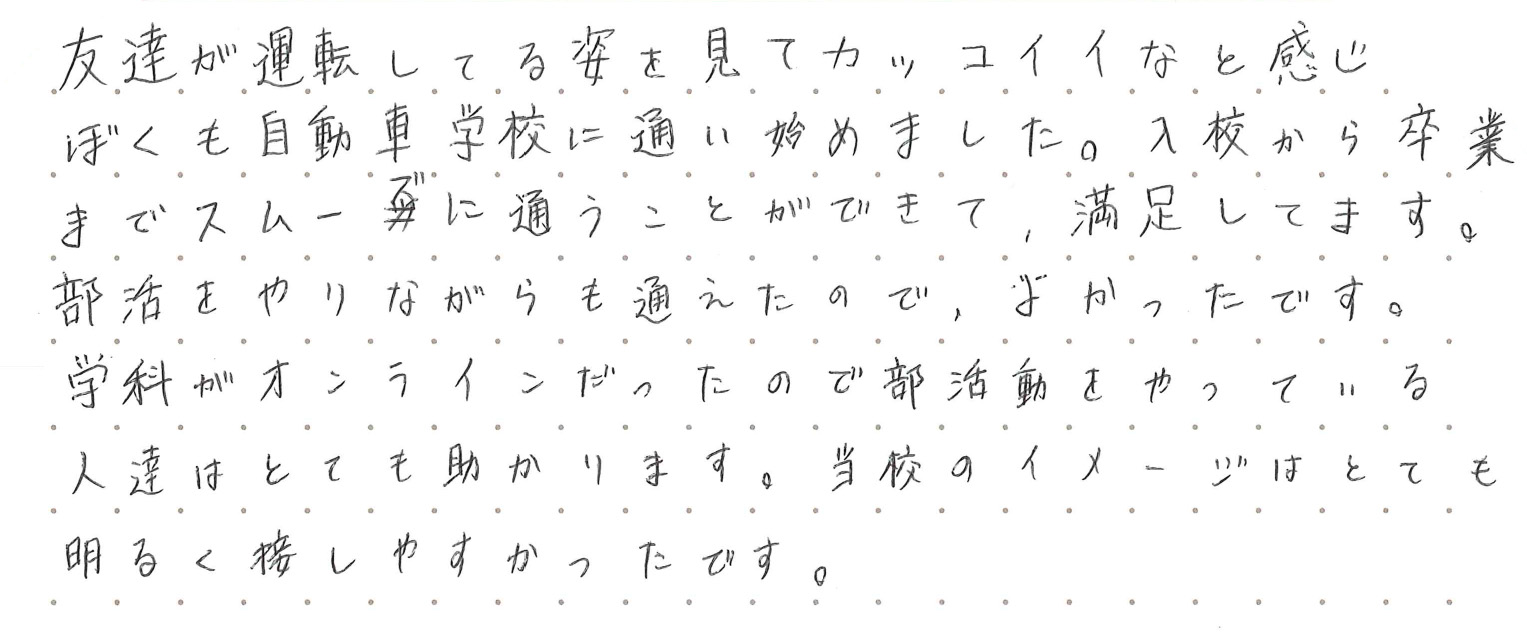 友達が運転してる姿を見てカッコイイなと感じ
ぼくも自動車学校に通い始めました。入校から卒業
までスムーズに通うことができて、満足してます。
部活をやりながらも通えたので、よかったです。
学科がオンラインだったので部活動をやっている
人達はとても助かります。当校のイメージはとても
明るく接しやすかったです。